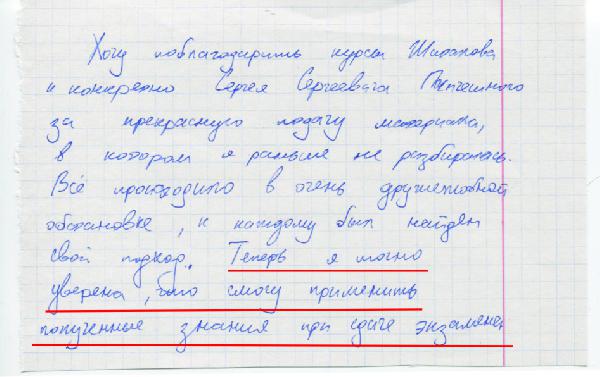 Хочу поблагодарить курсы Шипачова
и конкретно Сергея Сергеевича
за прекрасную подачу материала,
в котором я раньше не разбиралась.
Всё проходило в очень дружелюбной
обстановке, к каждому был найден
свой подход. Теперь я точно
уверена, что смогу применить
полученные знания при сдаче экзамена